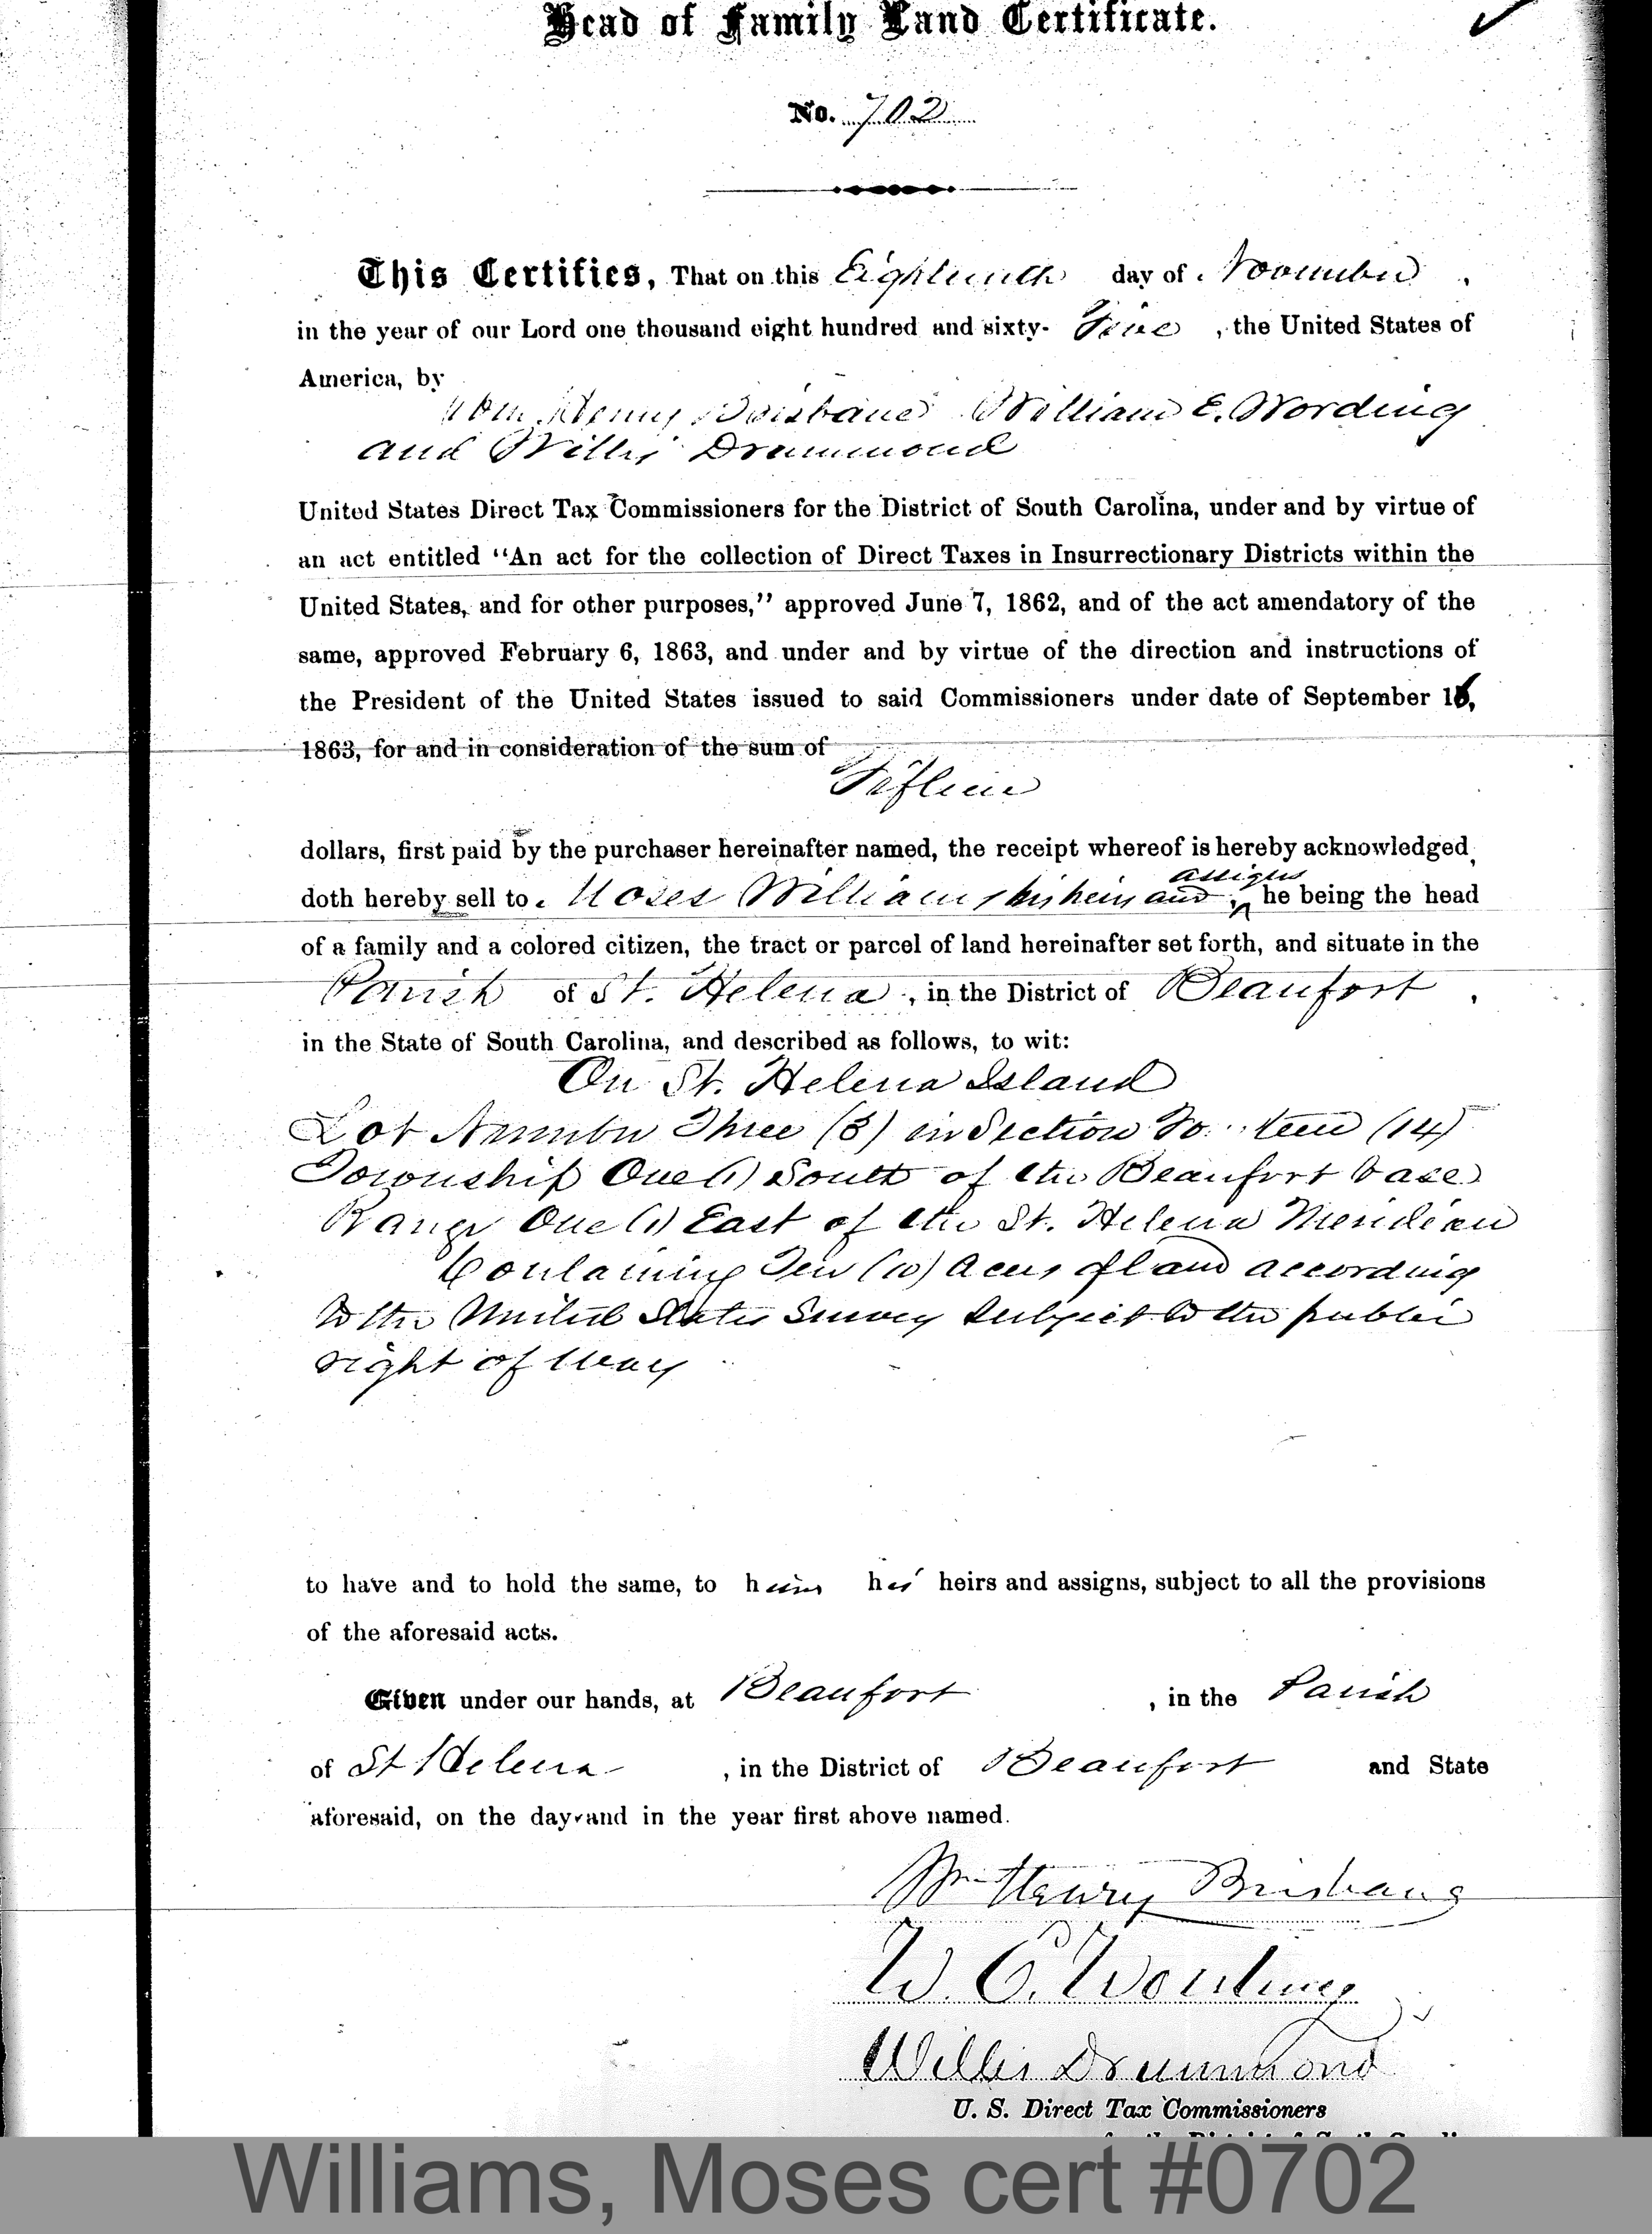 Head of Family Land Certificate.
No. 702
This Certifies, That on this Eighteenth day of November,
in the year of our Lord one thousand eight hundred and sixty-Five, the United States of
America, by
Wm. Henry Brisbane William E. Wording
and Willis Drummond
United States Direct Tax Commissioners for the District of South Carolina, under and by virtue of
an act entitled "An act for the collection of Direct Taxes in Insurrectionary Districts within the
United States, and for other purposes," approved June 7, 1862, and of the act amendatory of the
same, approved February 6, 1863, and under and by virtue of the direction and instructions of
the President of the United States issued to said Commissioners under date of September 16,
1863, for and in consideration of the sum of
Fifteen
dollars, first paid by the purchaser hereinafter named, the receipt whereof is hereby acknowledged,
assigns
doth hereby sell to Moses Williams, his heirs and, he being the head
of a family and a colored citizen, the tract or parcel of land hereinafter set forth, and situate in the
Parish of St. Helena, in the District of Beaufort,
in the State of South Carolina, and described as follows, to wit:
On St. Helena Island
Lot Number Three (3) in Section Fourteen (14)
Township One (1) South of the Beaufort base
Range One (1) East of the St. Helena Meridian
Containing Ten (10) Acres of land according
to the United States Survey subject to the public
right of way
to have and to hold the same, to him his heirs and assigns, subject to all the provisions
of the aforesaid acts.
Given under our hands, at Beaufort, in the Parish
of St Helena, in the District of Beaufort and State
aforesaid, on the day and in the year first above named.
Wm Henry Brisbane
W. E. Wording
Willis Drummond
U. S. Direct Tax Commissioners
Williams, Moses cert #0702